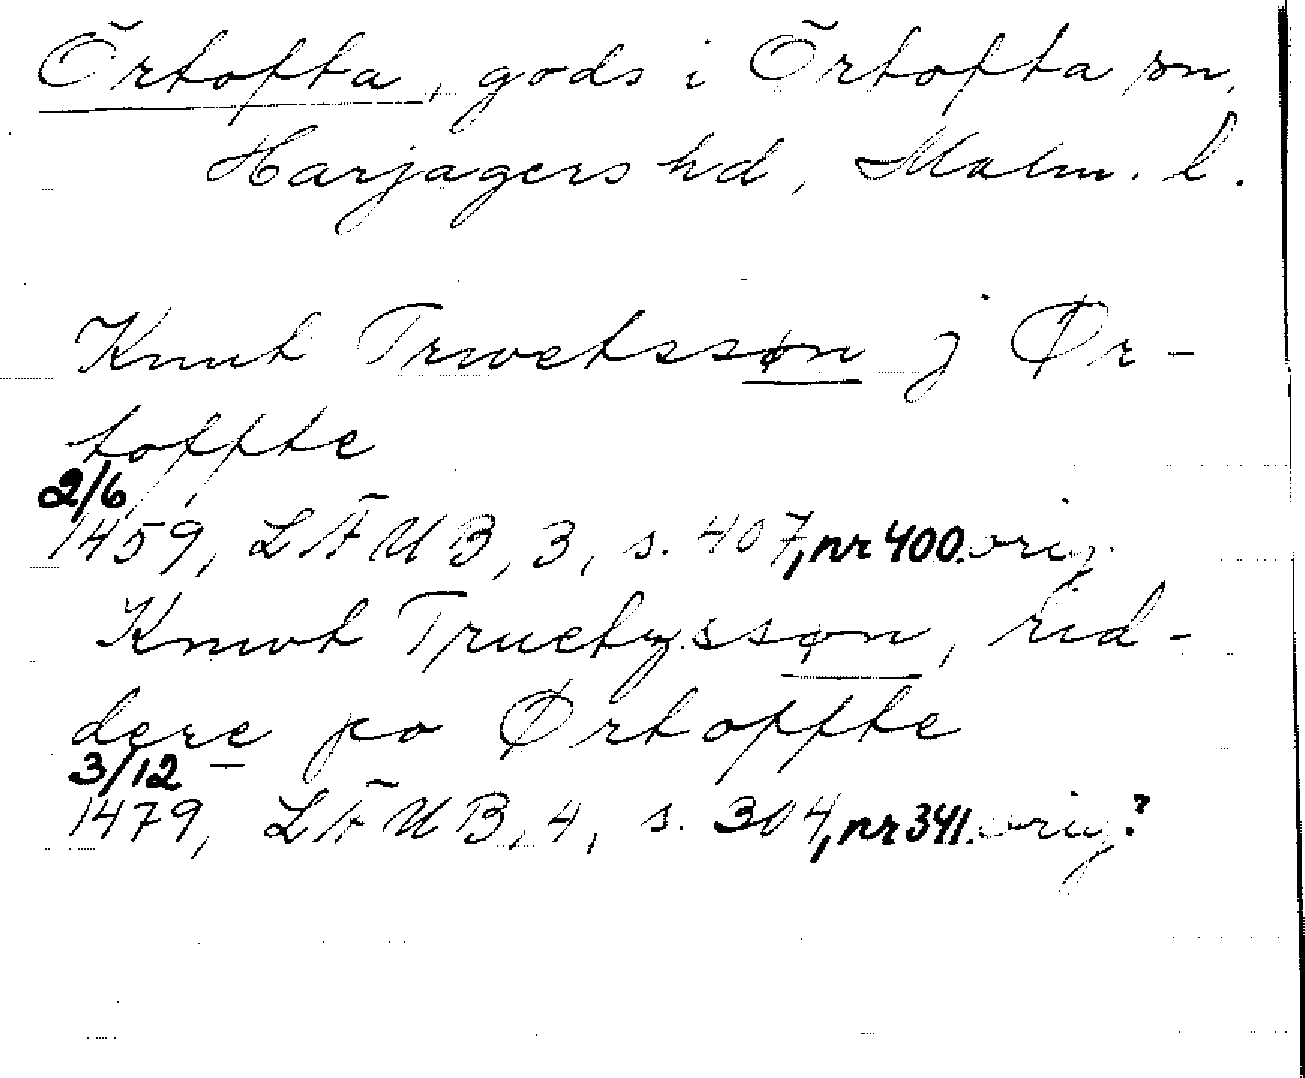 Örtofta, gods i Örtofta sn,
Harjagers hd, Malm. l.
Knut Trwetssøn j Ør-
toffte
2/6
1459, LÄUB, 3, s. 407, nr 400. orig.
Knwt Truetyssøn, rid-
dere po Ørtoffte
3/12
1479, LÄUB, 4, s. 304, nr 341. orig?